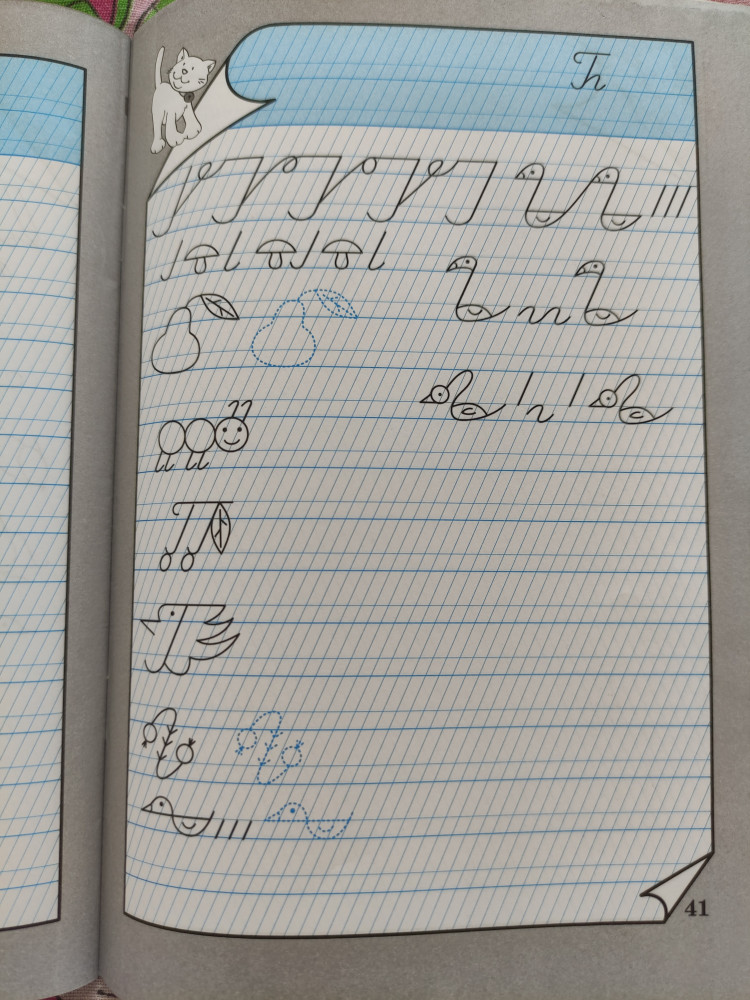 Ћ
41